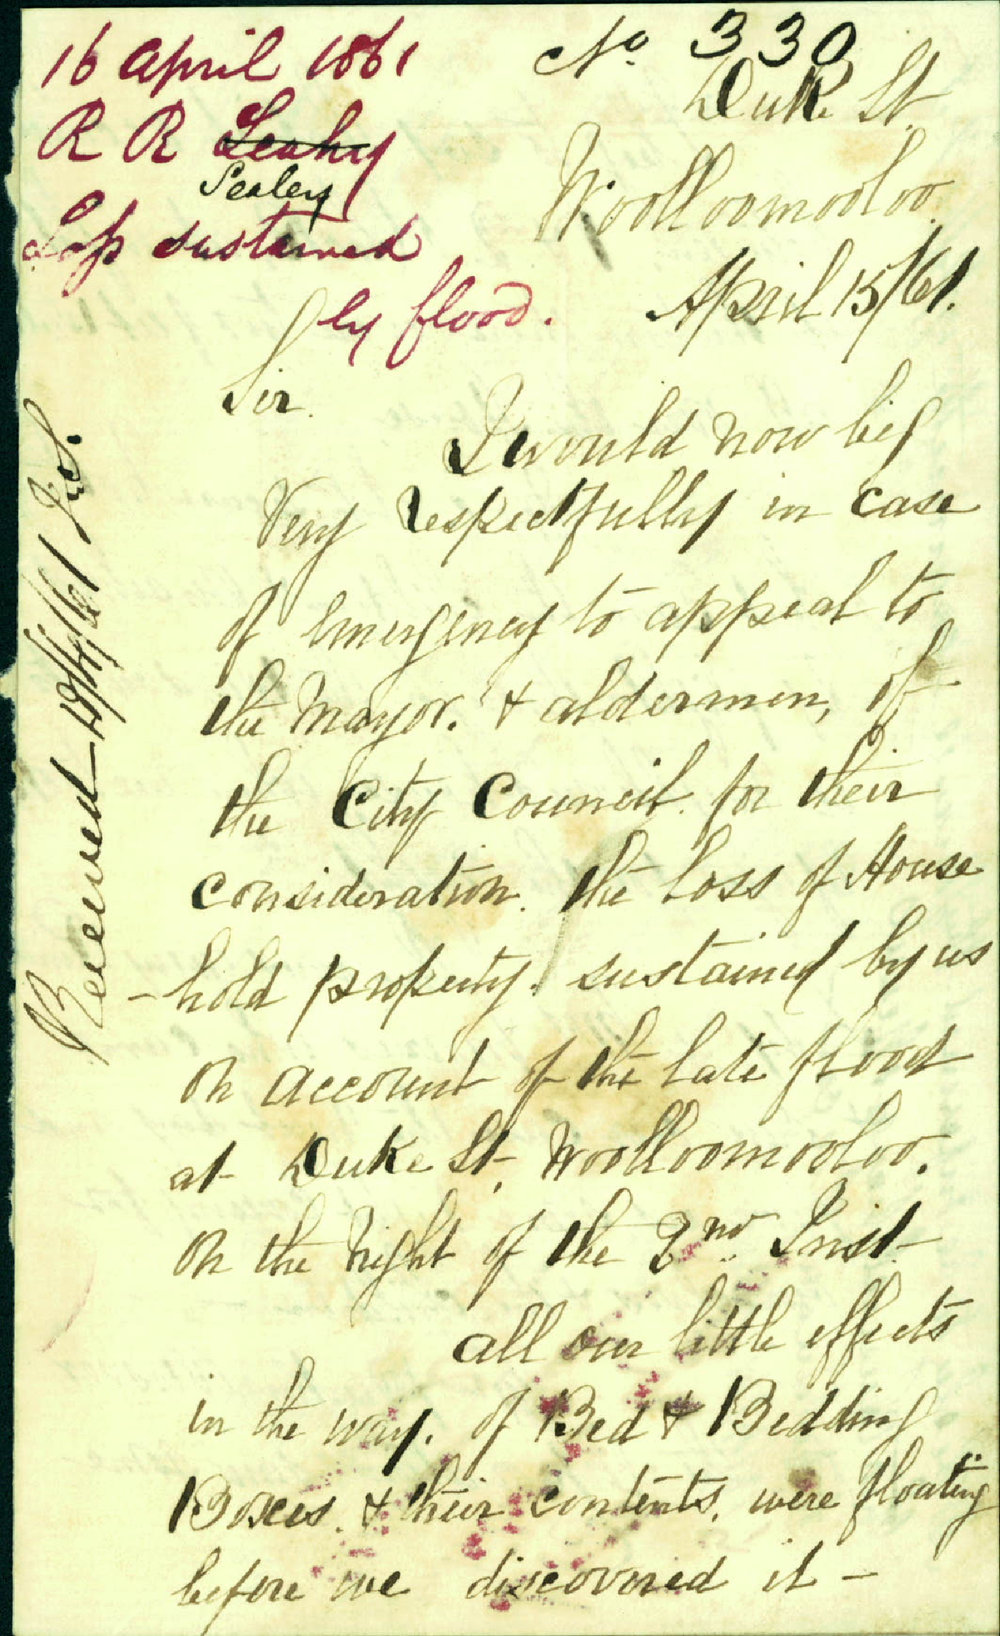 16 April 1861
R R Leahy
Sealey
Loss sustained
by flood.
No. 330
Duke St.
Woolloomooloo.
April 15/61.
Sir.
I would now beg
Very respectfully in case
of emergency to appeal to
the Mayor. & aldermen, of
the City Council. for their
consideration. the loss of House
-hold property. sustained by us
on account of the late flood
at Duke St, Woolloomooloo.
on the Night of the 2nd. Inst-
all our little effects
in the way. of Bed & Bedding
Boxes. & their contents. were floating
before we discovered it -
Received